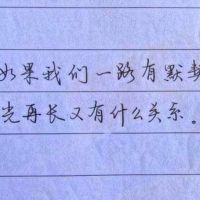 如果我们一路有默契
光再长又有什么关系。